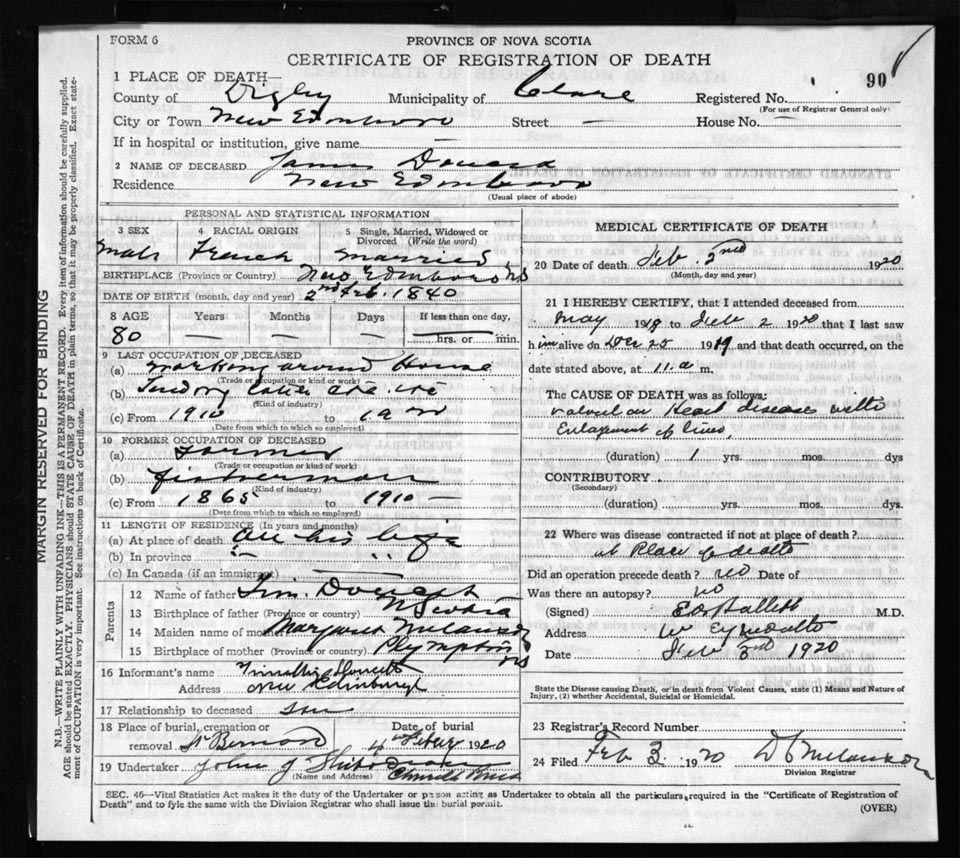 FORM 6
PROVINCE OF NOVA SCOTIA
CERTIFICATE OF REGISTRATION OF DEATH
90
1 PLACE OF DEATH—
County of Digby Municipality of Clare Registered No.
(For use of Registrar General only)
City or Town New Edinboro Street — House No. —
If in hospital or institution, give name —
2 NAME OF DECEASED James Doucet
Residence New Edinboro
(Usual place of abode)
PERSONAL AND STATISTICAL INFORMATION
3 SEX 4 RACIAL ORIGIN 5 Single, Married, Widowed or Divorced (Write the word)
Male French Married
BIRTHPLACE (Province or Country) New Edinboro NS
DATE OF BIRTH (month, day and year) 2nd Feb. 1840
8 AGE Years Months Days If less than one day,
80 — — — hrs. or min.
9 LAST OCCUPATION OF DECEASED
(a) Working around House
(Trade or occupation or kind of work)
(b)
(Kind of industry)
(c) From 1910 to
(Date from which to which so employed)
10 FORMER OCCUPATION OF DECEASED
(a) Farmer
(Trade or occupation or kind of work)
(b) Fisherman
(Kind of industry)
(c) From 1865 to 1910 —
(Date from which to which so employed)
11 LENGTH OF RESIDENCE (In years and months)
(a) At place of death All his life
(b) In province " "
(c) In Canada (if an immigrant) —
Parents
12 Name of father Doucet
13 Birthplace of father (Province or country) N Scotia
14 Maiden name of mother Margaret Melanson
15 Birthplace of mother (Province or country) Plympton NS
16 Informant's name Doucett
Address New Edinburgh
17 Relationship to deceased son
18 Place of burial, cremation or removal St Bernard Date of burial 4 Febury 1920
19 Undertaker John J
(Name and Address) Church
MEDICAL CERTIFICATE OF DEATH
20 Date of death Feb. 2nd 1920
(Month, day and year)
21 I HEREBY CERTIFY, that I attended deceased from
May 1918 to Feb 2 1920 that I last saw
him alive on Dec 25 1919 and that death occurred, on the
date stated above, at 11. a m.
The CAUSE OF DEATH was as follows:
valvular Heart disease with
Enlargement of liver,
(duration) 1 yrs. mos. dys
CONTRIBUTORY
(Secondary)
(duration) yrs. mos. dys.
22 Where was disease contracted if not at place of death?
at Place of death
Did an operation precede death? no Date of
Was there an autopsy? no
(Signed) Hallett M.D.
Address Weymouth
Date Feb 3rd 1920
State the Disease causing Death, or in death from Violent Causes, state (1) Means and Nature of
Injury, (2) whether Accidental, Suicidal or Homicidal.
23 Registrar's Record Number
24 Filed Feb 3 1920 Melanson
Division Registrar
SEC. 46—Vital Statistics Act makes it the duty of the Undertaker or person acting as Undertaker to obtain all the particulars required in the "Certificate of Registration of
Death" and to fyle the same with the Division Registrar who shall issue the burial permit.
(OVER)
MARGIN RESERVED FOR BINDING
N.B.—WRITE PLAINLY WITH UNFADING INK—THIS IS A PERMANENT RECORD. Every item of information should be carefully supplied.
AGE should be stated EXACTLY. PHYSICIANS should STATE CAUSE OF DEATH in plain terms, so that it may be properly classified. Exact state-
ment of OCCUPATION is very important. See instructions on back of Certificate.